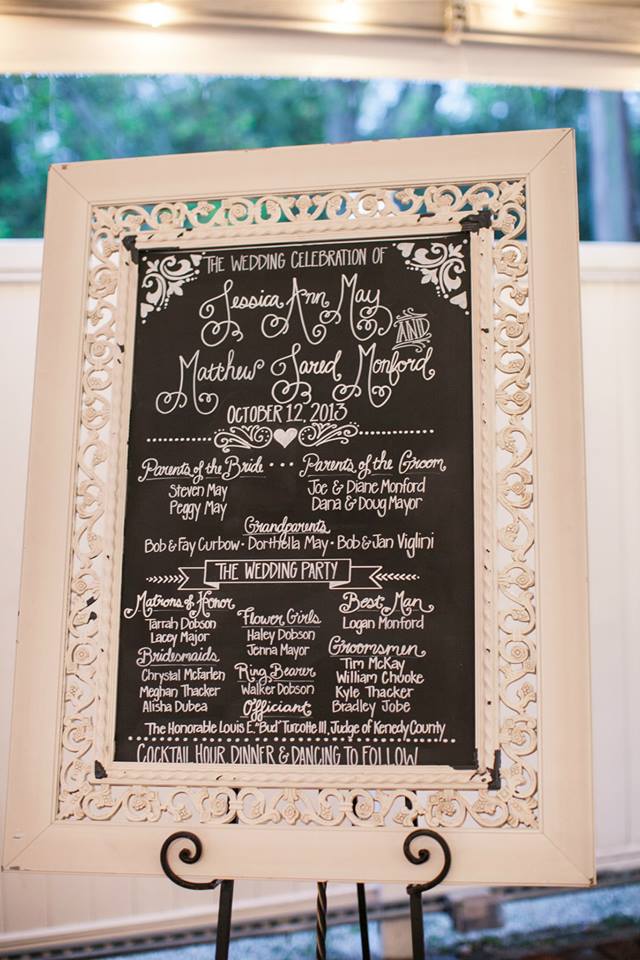 THE WEDDING CELEBRATION OF
Jessica Ann May
AND
Matthew Jared Monford
OCTOBER 12, 2013
Parents of the Bride
Steven May
Peggy May
Parents of the Groom
Joe & Diane Monford
Dana & Doug Mayor
Grandparents
Bob & Fay Curbow · Dorthella May · Bob & Jan Viglini
THE WEDDING PARTY
Matrons of Honor
Tarrah Dobson
Lacey Major
Bridesmaids
Chrystal McFarlen
Meghan Thacker
Alisha Dubea
Flower Girls
Haley Dobson
Jenna Mayor
Ring Bearer
Walker Dobson
Officiant
Best Man
Logan Monford
Groomsmen
Tim McKay
William Chuoke
Kyle Thacker
Bradley Jobe
The Honorable Louis E. "Bud" Turcotte III, Judge of Kenedy County
COCKTAIL HOUR DINNER & DANCING TO FOLLOW